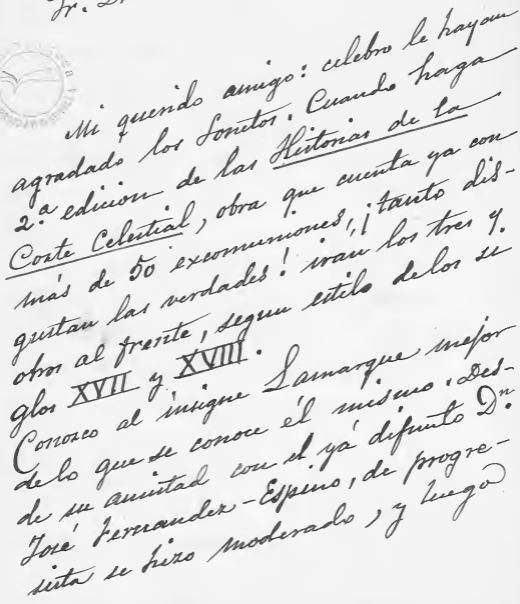 Sr. D
Mi querido amigo: celebro le hayan
agradado los Sonetos. Cuando haga
2.ª edicion de las Historias de la
Corte Celestial, obra que cuenta ya con
más de 50 excomuniones, ¡tanto dis-
gustan las verdades! iran los tres y
otros al frente, segun estilo de los si
glos XVII y XVIII.
Conozco al insigne Lamarque mejor
de lo que se conoce él mismo. Des-
de su amistad con el yá difunto Dn.
José Fernandez-Espino, de progre-
sista se hizo moderado, y luego